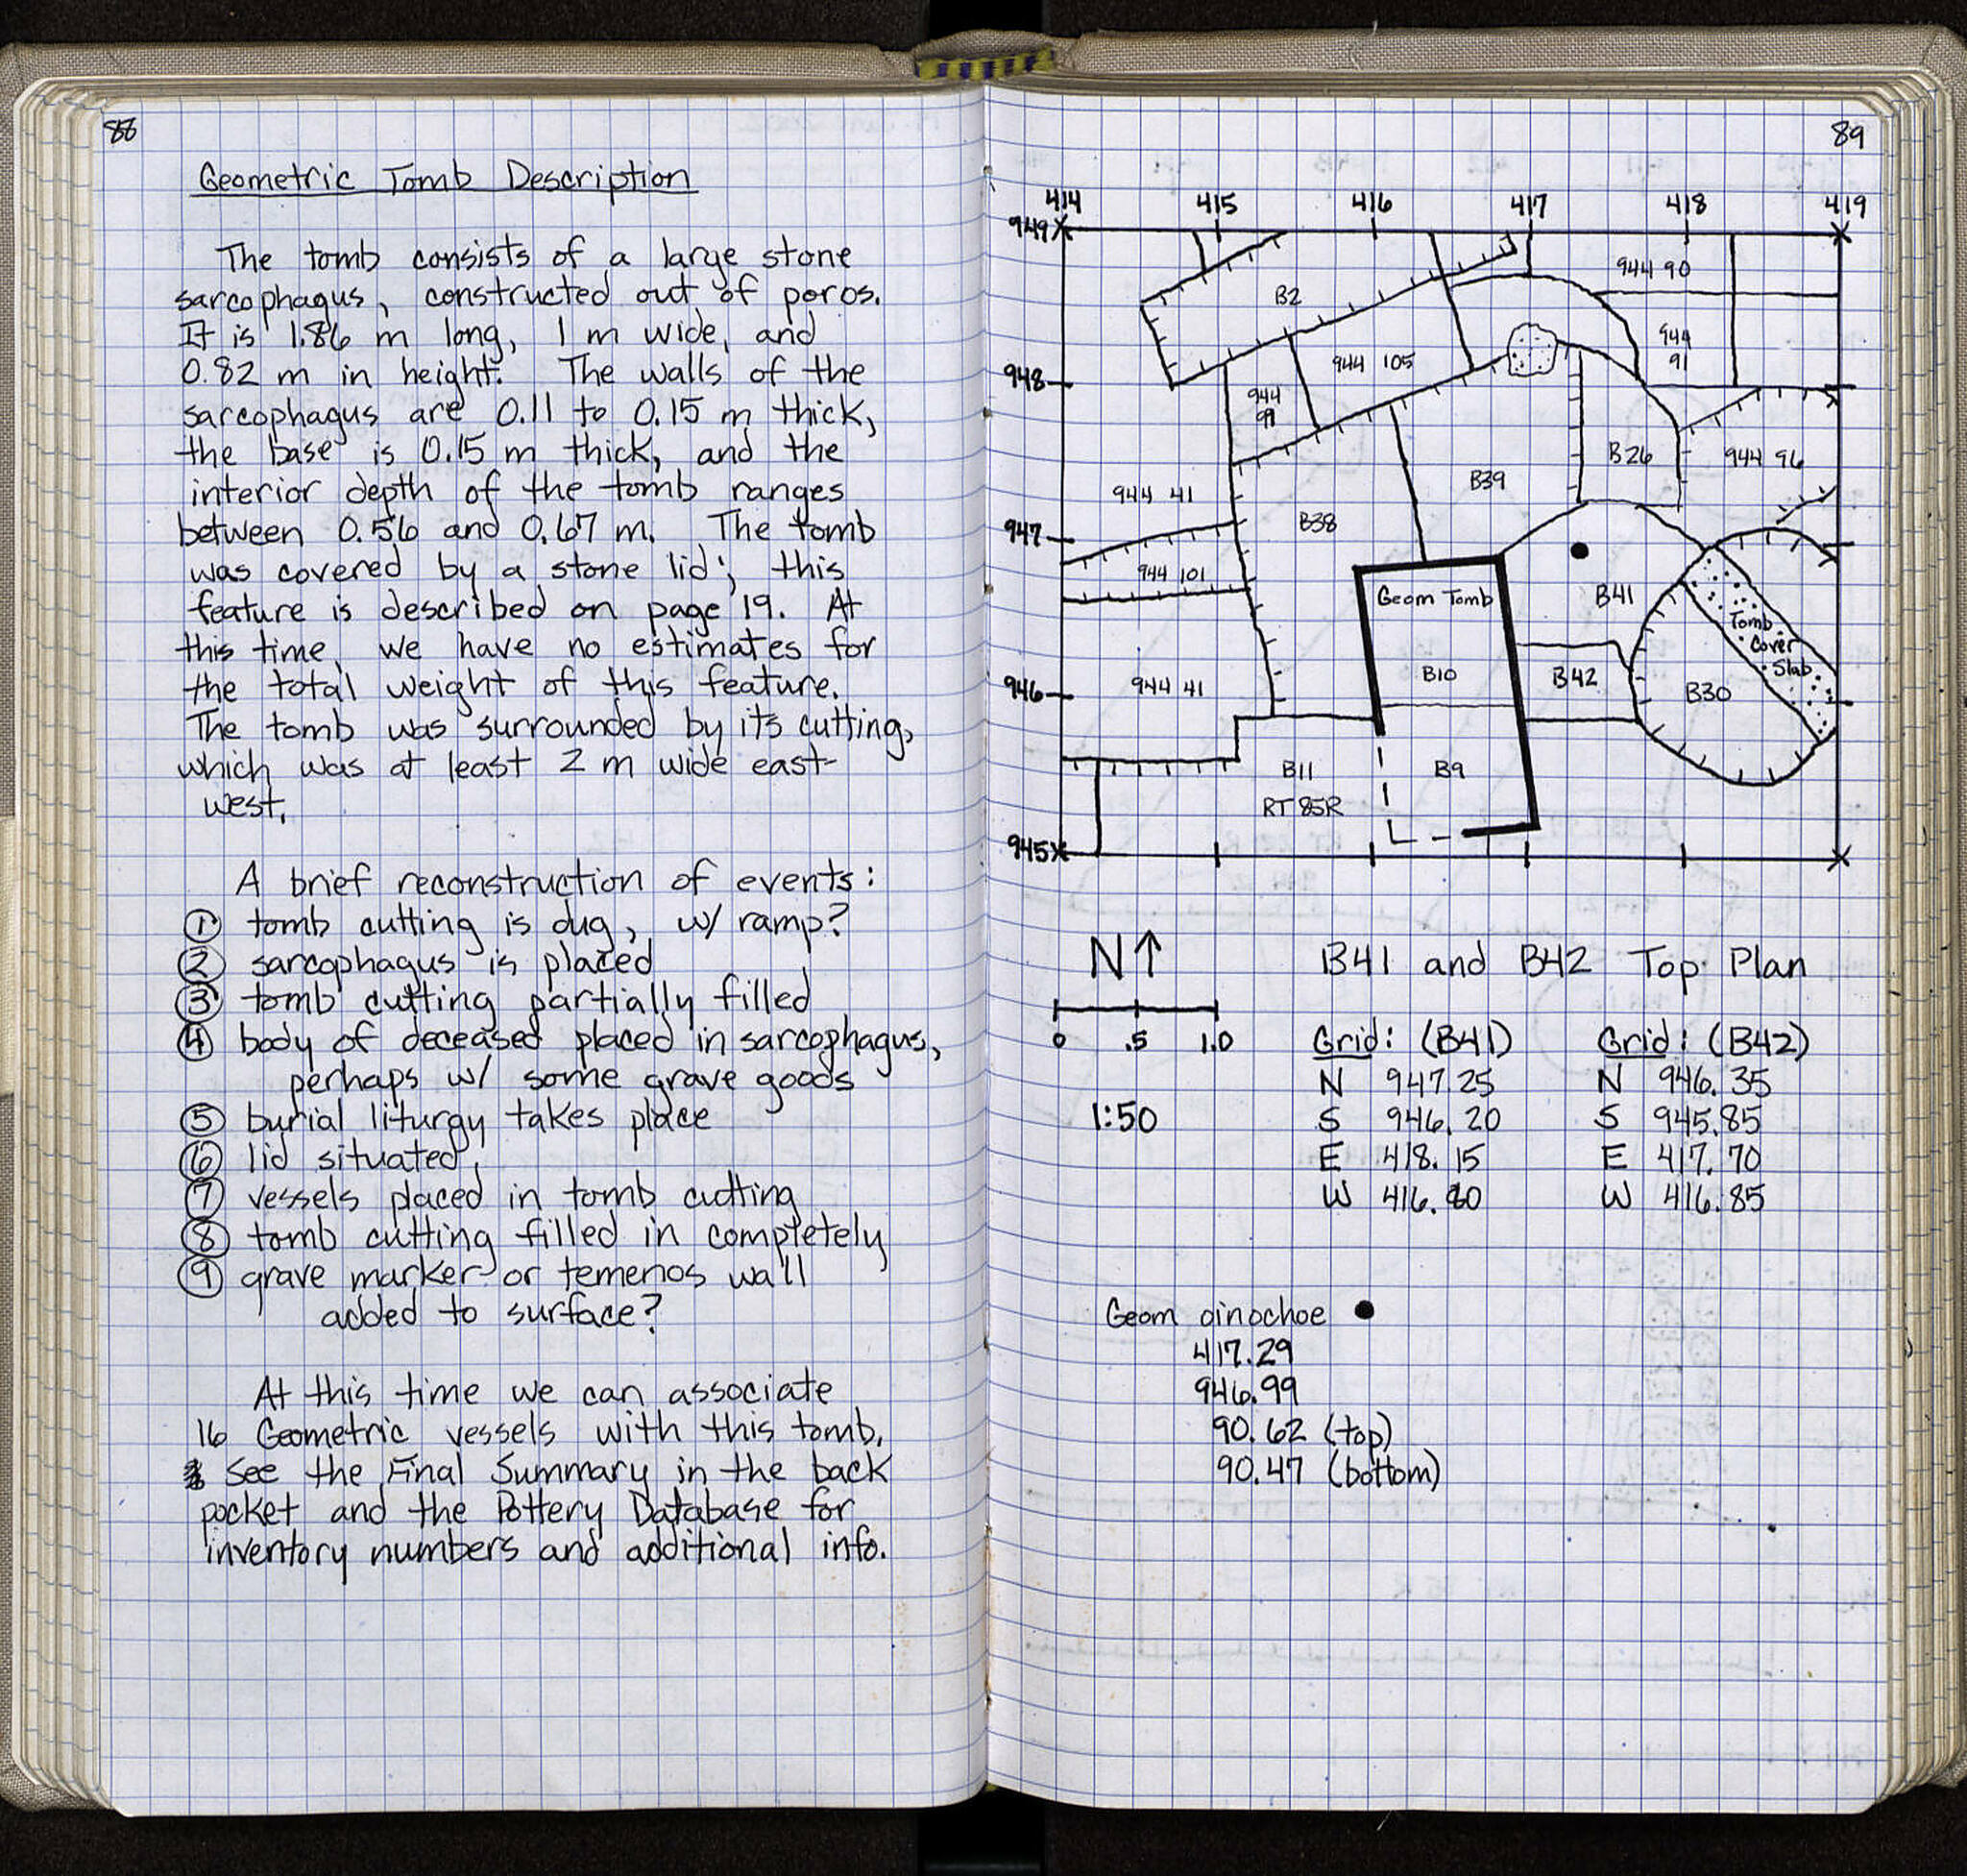 88
Geometric Tomb Description
The tomb consists of a large stone
sarcophagus, constructed out of poros.
It is 1.86 m long, 1 m wide, and
0.82 m in height. The walls of the
sarcophagus are 0.11 to 0.15 m thick,
the base is 0.15 m thick, and the
interior depth of the tomb ranges
between 0.56 and 0.67 m. The tomb
was covered by a stone lid; this
feature is described on page 19. At
this time, we have no estimates for
the total weight of this feature.
The tomb was surrounded by its cutting,
which was at least 2 m wide east-
west.
A brief reconstruction of events:
① tomb cutting is dug, w/ ramp?
② sarcophagus is placed
③ tomb cutting partially filled
④ body of deceased placed in sarcophagus,
perhaps w/ some grave goods
⑤ burial liturgy takes place
⑥ lid situated,
⑦ vessels placed in tomb cutting
⑧ tomb cutting filled in completely
⑨ grave marker or temenos wall
added to surface?
At this time we can associate
16 Geometric vessels with this tomb.
See the Final Summary in the back
pocket and the Pottery Database for
inventory numbers and additional info.
89
414 415 416 417 418 419
949
944 90
B2
944
91
944 105
948
944
99
B26
944 96
B39
944 41
B38
947
944 101
Geom Tomb
B41
Tomb
Cover
Slab
B10
B42
946
944 41
B30
B11
B9
RT 85R
945
N↑
B41 and B42 Top Plan
0 .5 1.0
Grid: (B41) Grid: (B42)
N 947.25 N 946.35
1:50
S 946.20 S 945.85
E 418.15 E 417.70
W 416.80 W 416.85
Geom oinochoe ●
417.29
946.99
90.62 (top)
90.47 (bottom)